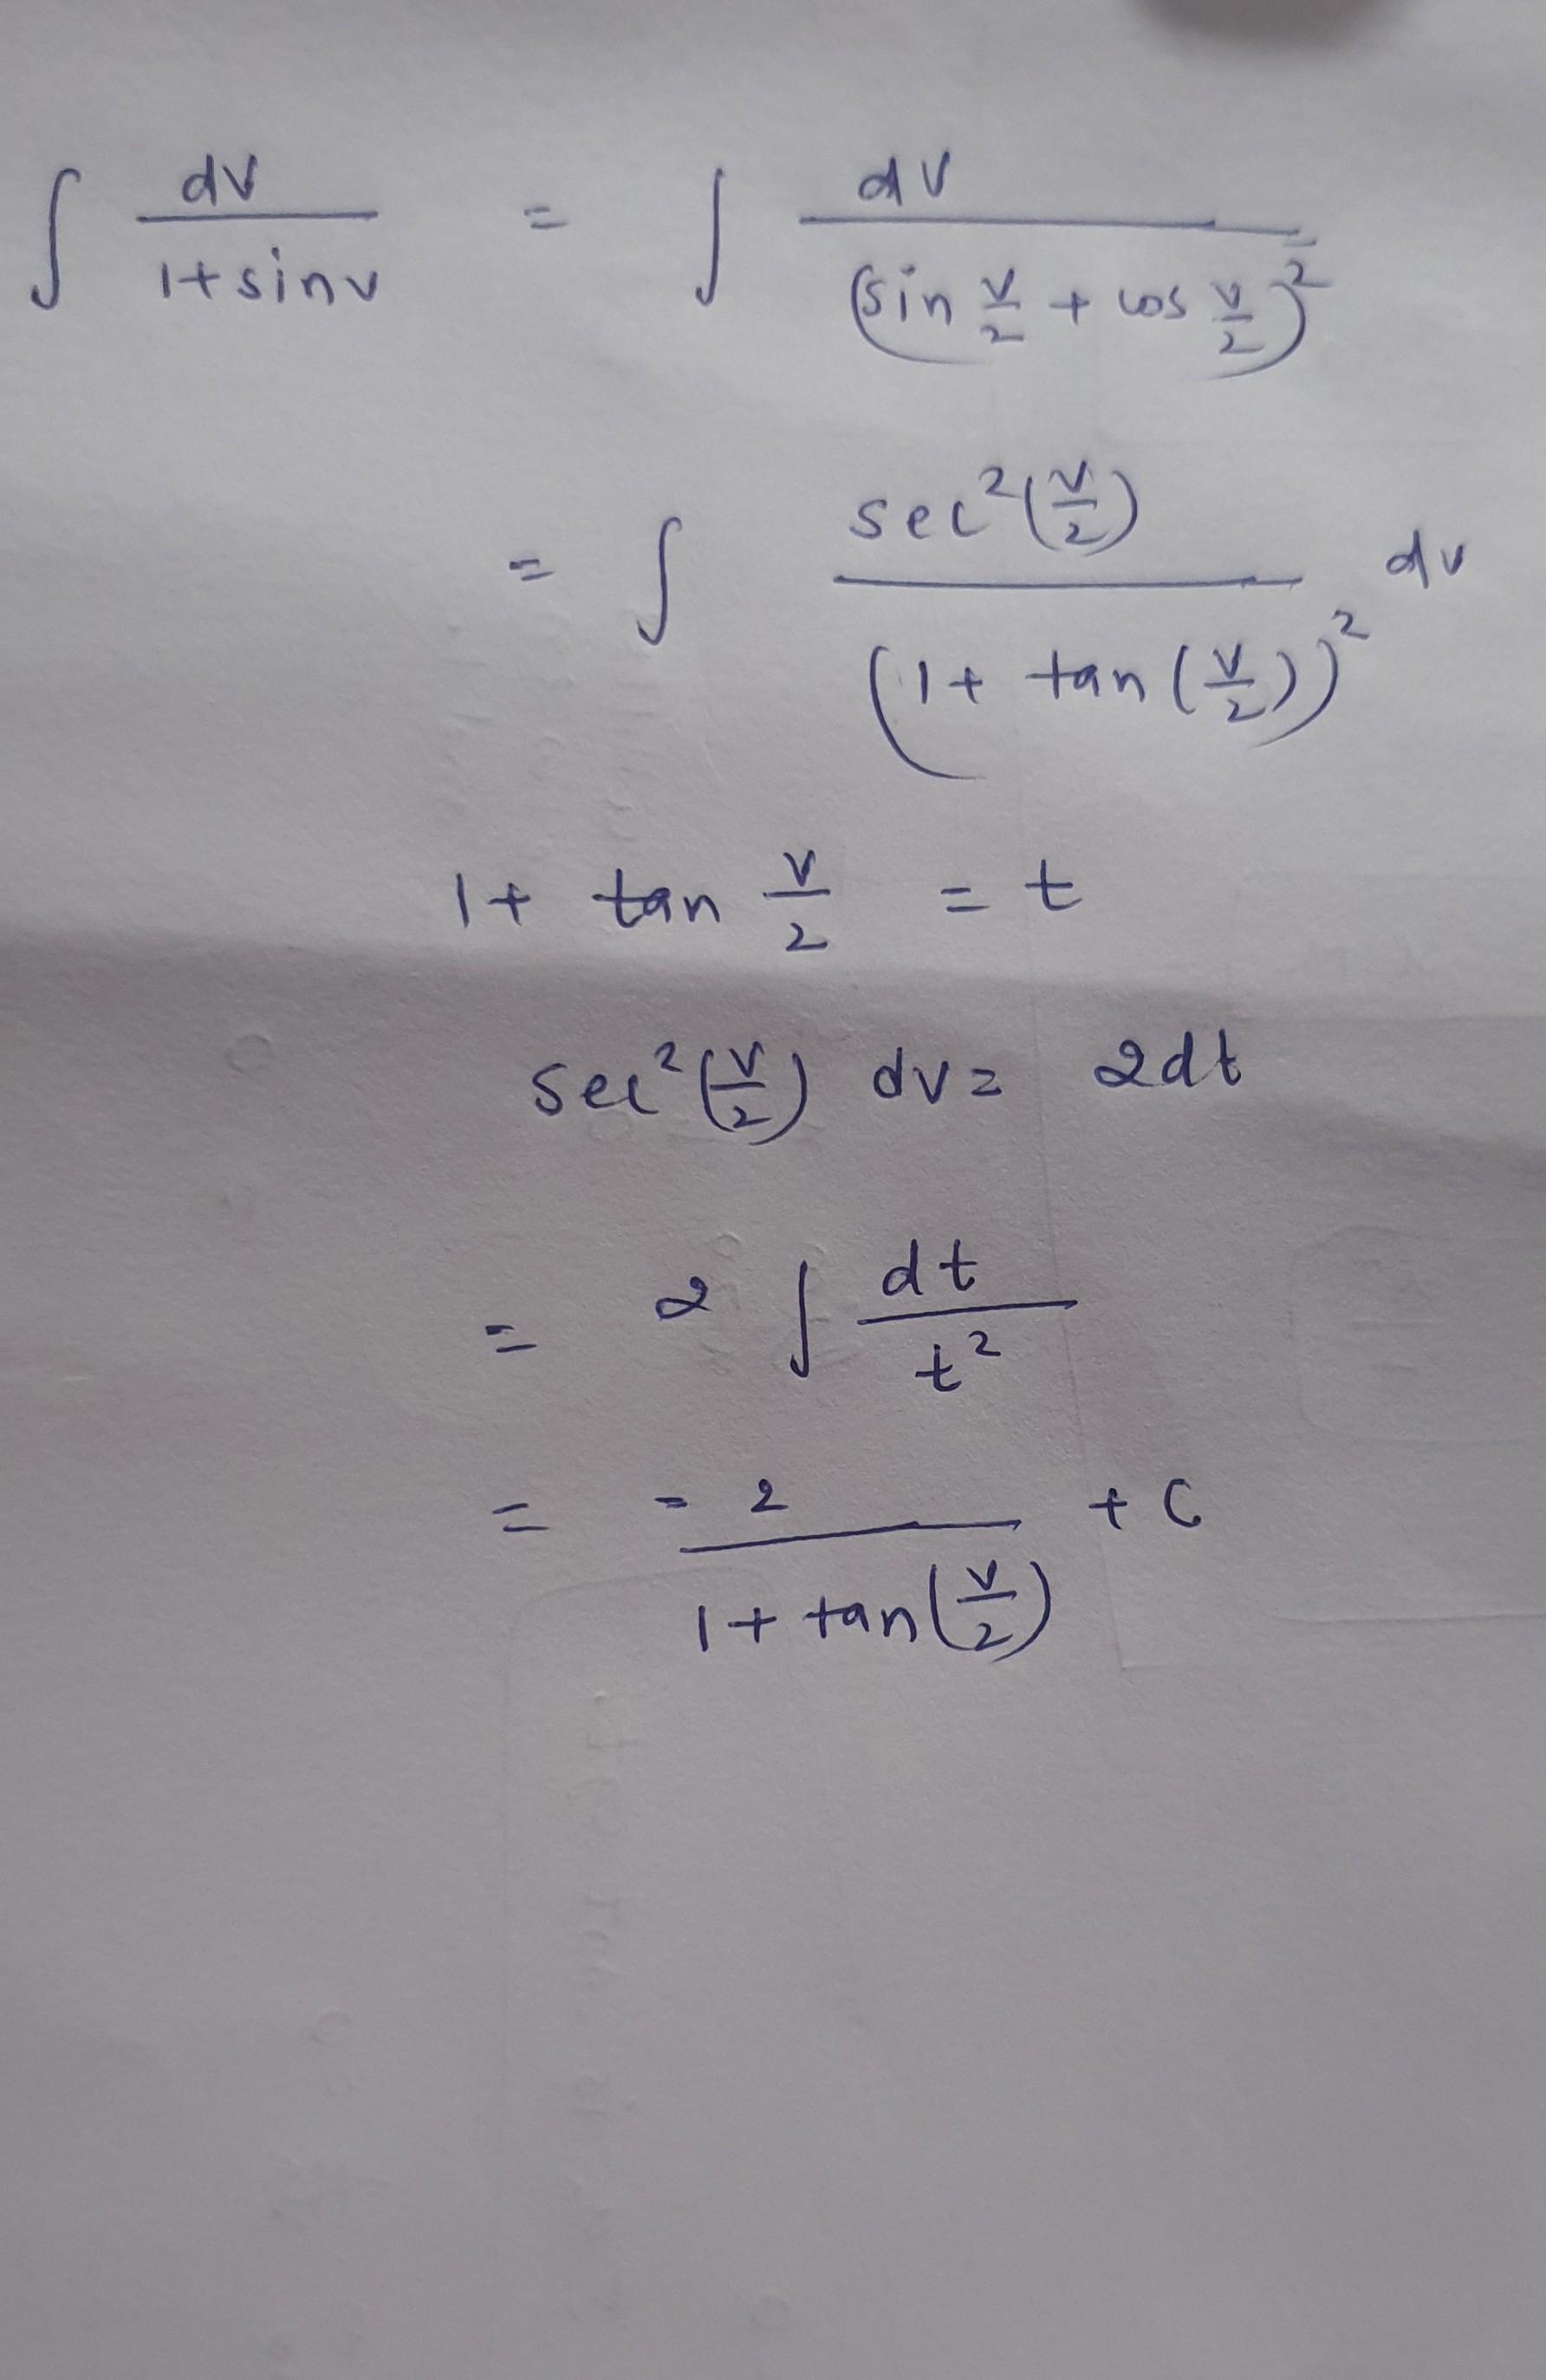 ∫ dv/(1+sinv) = ∫ dv/(sin v/2 + cos v/2)²
= ∫ sec²(v/2)/(1+ tan(v/2))² dv
1+ tan v/2 = t
sec²(v/2) dv = 2dt
= 2 ∫ dt/t²
= -2/(1+tan(v/2)) + C